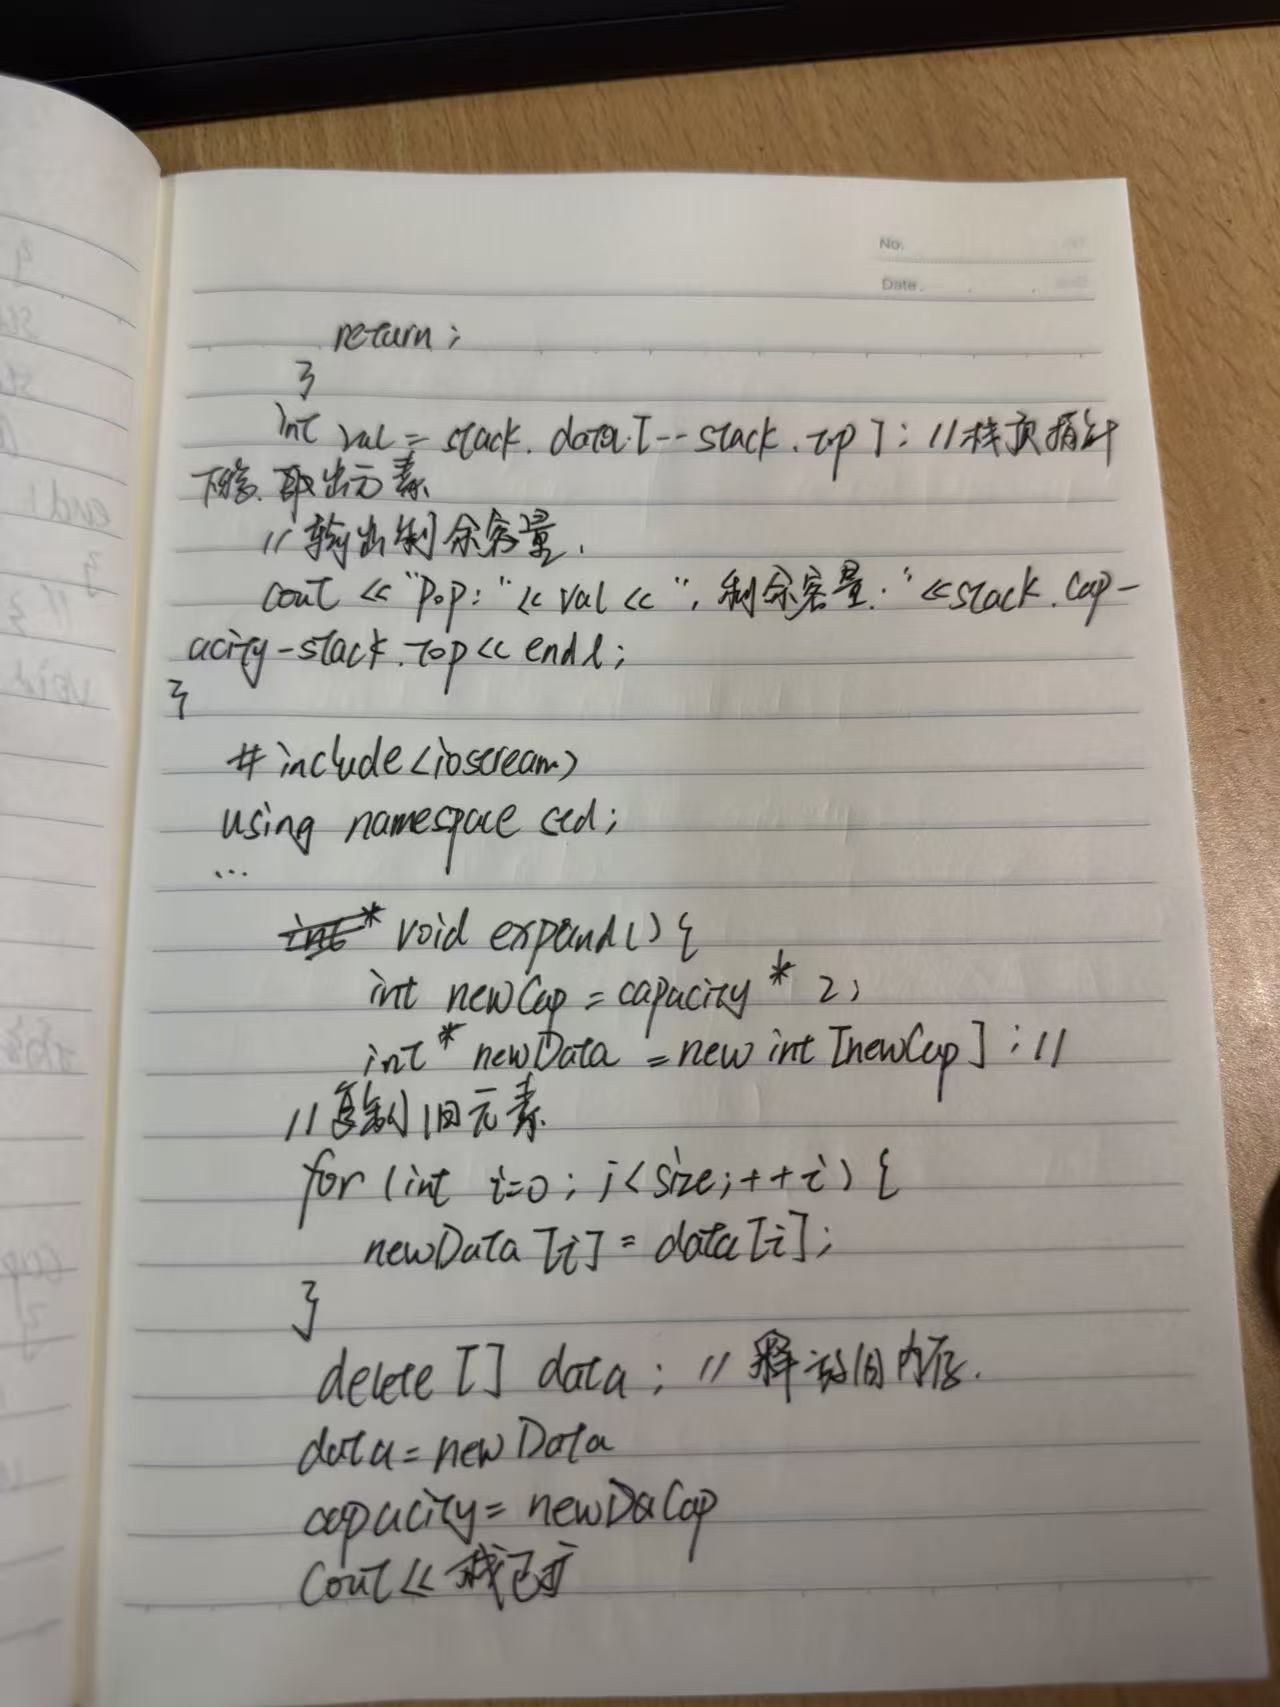 No.
Date.
return;
}
int val = stack.data[--stack.top]; //栈顶指针
下移,取出元素
//输出剩余容量.
cout << "Pop:" << val << ", 剩余容量:" << stack.cap-
acity-stack.top << endl;
}
#include<iostream>
using namespace std;
...
* void expand() {
int newCap = capacity * 2;
int* newData = new int [newCap]; //
//复制旧元素
for (int i=0; i<size; ++i) {
newData [i] = data[i];
}
delete [] data; //释放旧内存.
data = newData
capacity = newDaCap
Cout << 栈已扩